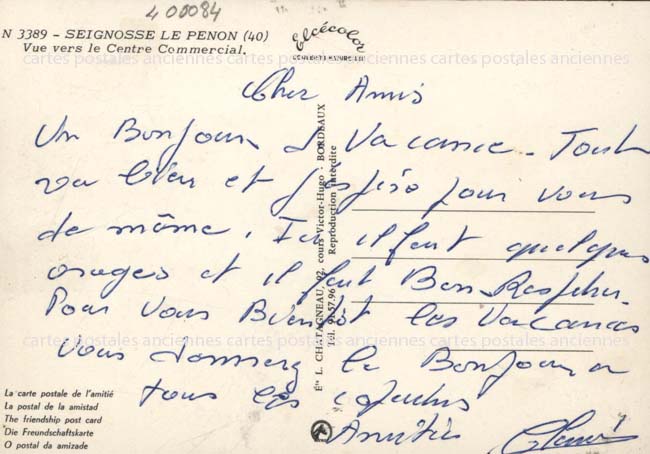 400084
N 3389 - SEIGNOSSE LE PENON (40)
Vue vers le Centre Commercial.
elcécolor
cartes postales anciennes cartes postales anciennes cartes postales anciennes
Cher Amis
Un Bonjour de Vacance. Tout
va bien et j'espère pour vous
de même. Ici il fait quelques
orages et il fait Bon Respirer.
Pour Vous Bientôt les Vacances
cartes postales anciennes cartes postales anciennes cartes postales anciennes
Vous donnerez le Bonjour a
tous les
Amitiés
Éts L. CHATAGNEAU, 92, cours Victor-Hugo - BORDEAUX
Tél. 91.57.96 Reproduction interdite
La carte postale de l'amitié
La postal de la amistad
The friendship post card
Die Freundschaftskarte
O postal da amizade